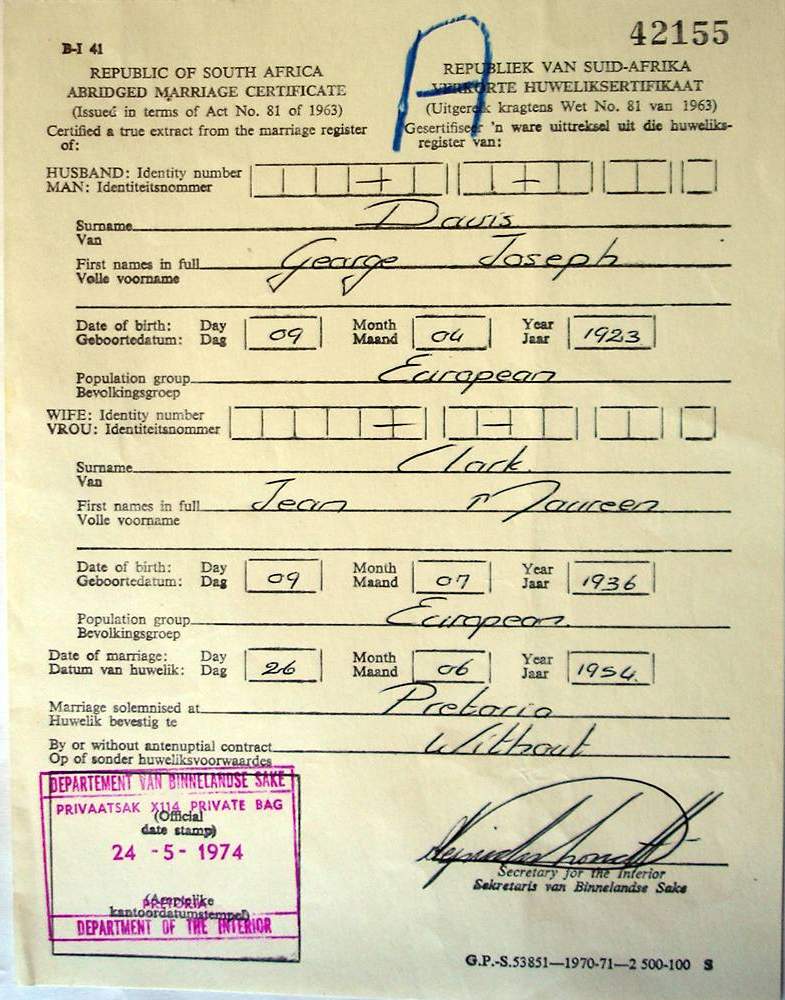 42155
B-I 41
A
REPUBLIC OF SOUTH AFRICA
ABRIDGED MARRIAGE CERTIFICATE
(Issued in terms of Act No. 81 of 1963)
Certified a true extract from the marriage register
of:
REPUBLIEK VAN SUID-AFRIKA
VERKORTE HUWELIKSERTIFIKAAT
(Uitgereik kragtens Wet No. 81 van 1963)
Gesertifiseer 'n ware uittreksel uit die huweliks-
register van:
HUSBAND: Identity number
MAN: Identiteitsnommer
Surname Davis
Van
First names in full George Joseph
Volle voorname
Date of birth: Day 09 Month 04 Year 1923
Geboortedatum: Dag Maand Jaar
Population group European
Bevolkingsgroep
WIFE: Identity number
VROU: Identiteitsnommer
Surname Clark.
Van
First names in full Jean Maureen
Volle voorname
Date of birth: Day 09 Month 07 Year 1936
Geboortedatum: Dag Maand Jaar
Population group European.
Bevolkingsgroep
Date of marriage: Day 26 Month 06 Year 1954.
Datum van huwelik: Dag Maand Jaar
Marriage solemnised at Pretoria
Huwelik bevestig te
By or without antenuptial contract Without
Op of sonder huweliksvoorwaardes
DEPARTEMENT VAN BINNELANDSE SAKE
PRIVAATSAK X114 PRIVATE BAG
(Official
date stamp)
24 -5- 1974
PRETORIA
(Amptelike
kantoordatumstempel)
DEPARTMENT OF THE INTERIOR
Secretary for the Interior
Sekretaris van Binnelandse Sake
G.P.-S.53851—1970-71—2 500-100 S